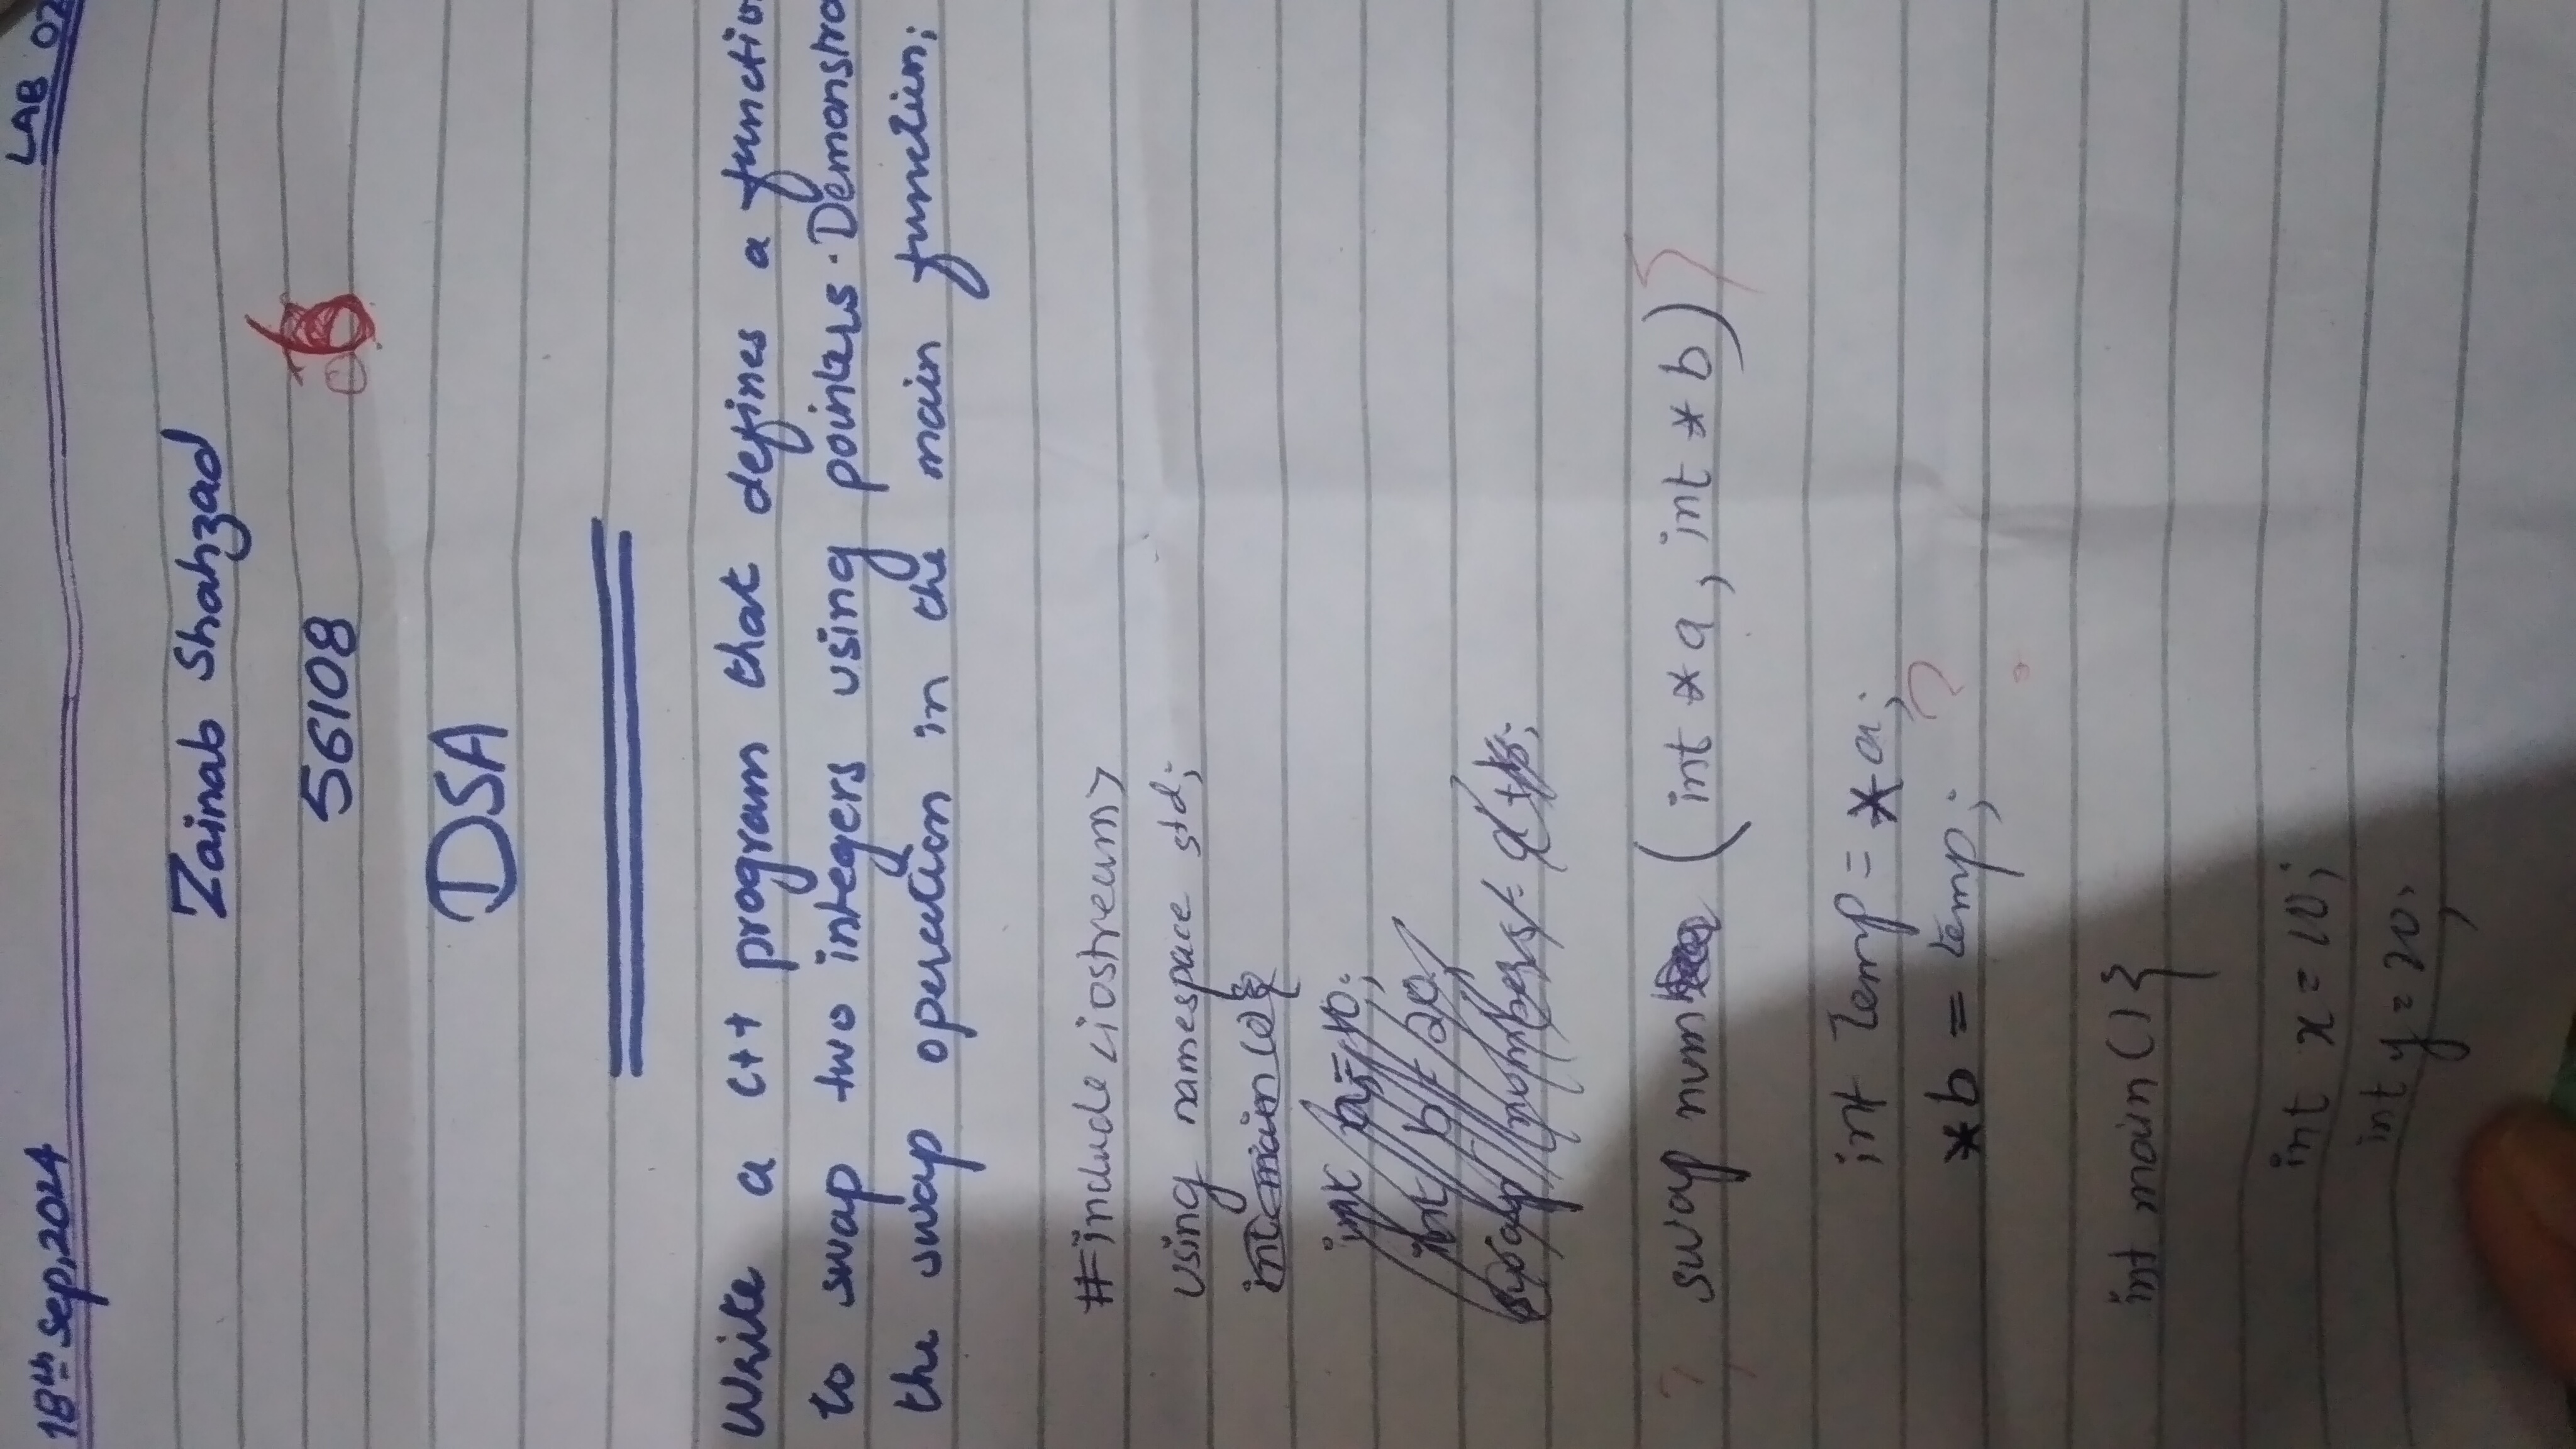 18th Sep, 2024 LAB 02
Zainab Shahzad
56108
DSA
Write a c++ program that defines a function
to swap two integers using pointers. Demonstra
the swap operation in the main function;
#include <iostream>
using namespace std;
int main () {
int a = 10;
int b = 20;
swap numbers = a + b;
? swap num (int *a, int *b) }
int temp = *a;
*b = temp; ?
int main () {
int x = 10;
int y = 20;